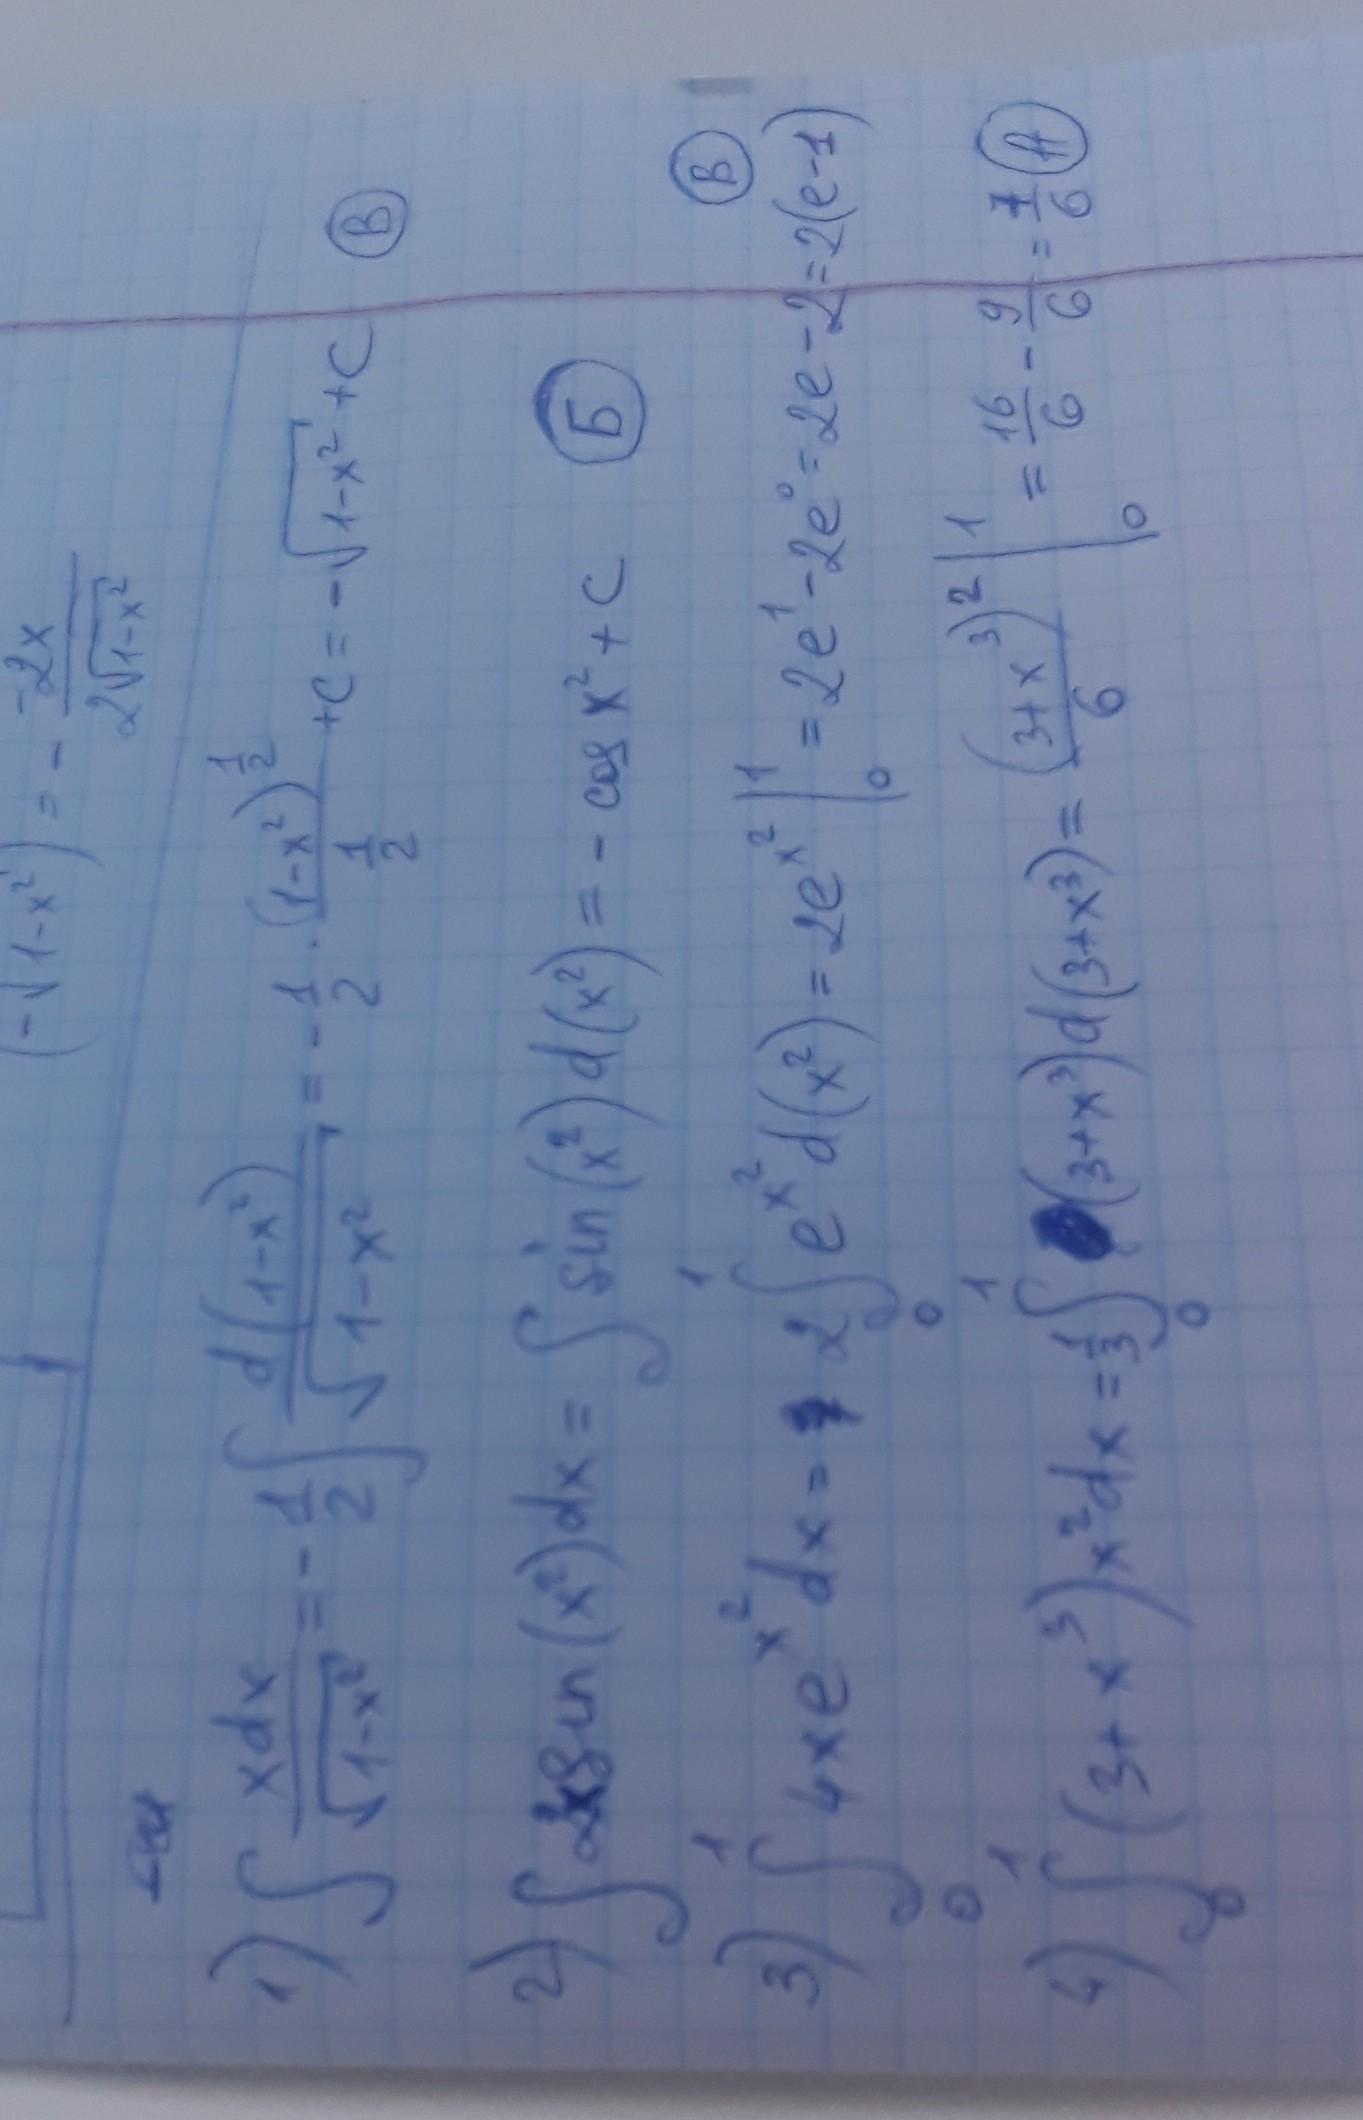 (-√1-x²)' = - -2x/2√1-x²
1) ∫ xdx/√1-x² = - 1/2 ∫ d(1-x²)/√1-x² = - 1/2 · (1-x²)^1/2 / 1/2 + C = - √1-x² + C В
2) ∫ 2x sin(x²)dx = ∫ sin(x²)d(x²) = - cos x² + C Б
3) ∫₀¹ 4xe^x² dx = 2∫₀¹ e^x² d(x²) = 2e^x² |₀¹ = 2e¹ - 2e⁰ = 2e - 2 = 2(e-1) В
4) ∫₀¹ (3+x³)x²dx = 1/3 ∫₀¹ (3+x³)d(3+x³) = (3+x³)²/6 |₀¹ = 16/6 - 9/6 = 7/6 А